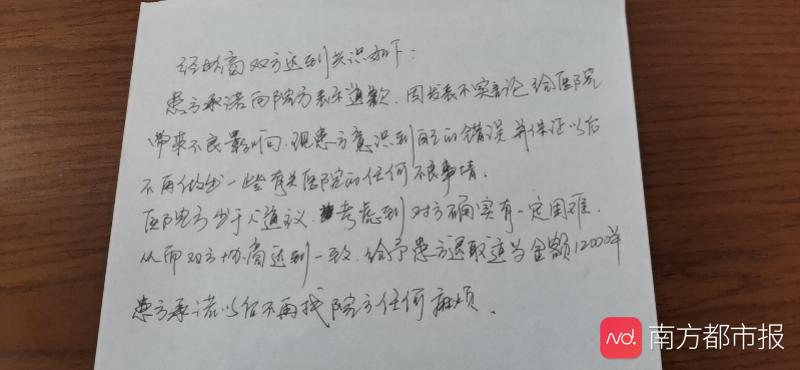 经协商双方达到共识如下:
患方承诺向院方表示道歉.因发表不实言论给医院
带来不良影响.现患方意识到自己的错误并保证以后
不再做出一些有关医院的任何不良事情.
医院方出于人道主义.考虑到对方确实有一定困难.
从而双方协商达到一致.给予患方退取适当金额12000元
患方承诺以后不再找院方任何麻烦.
nd.南方都市报